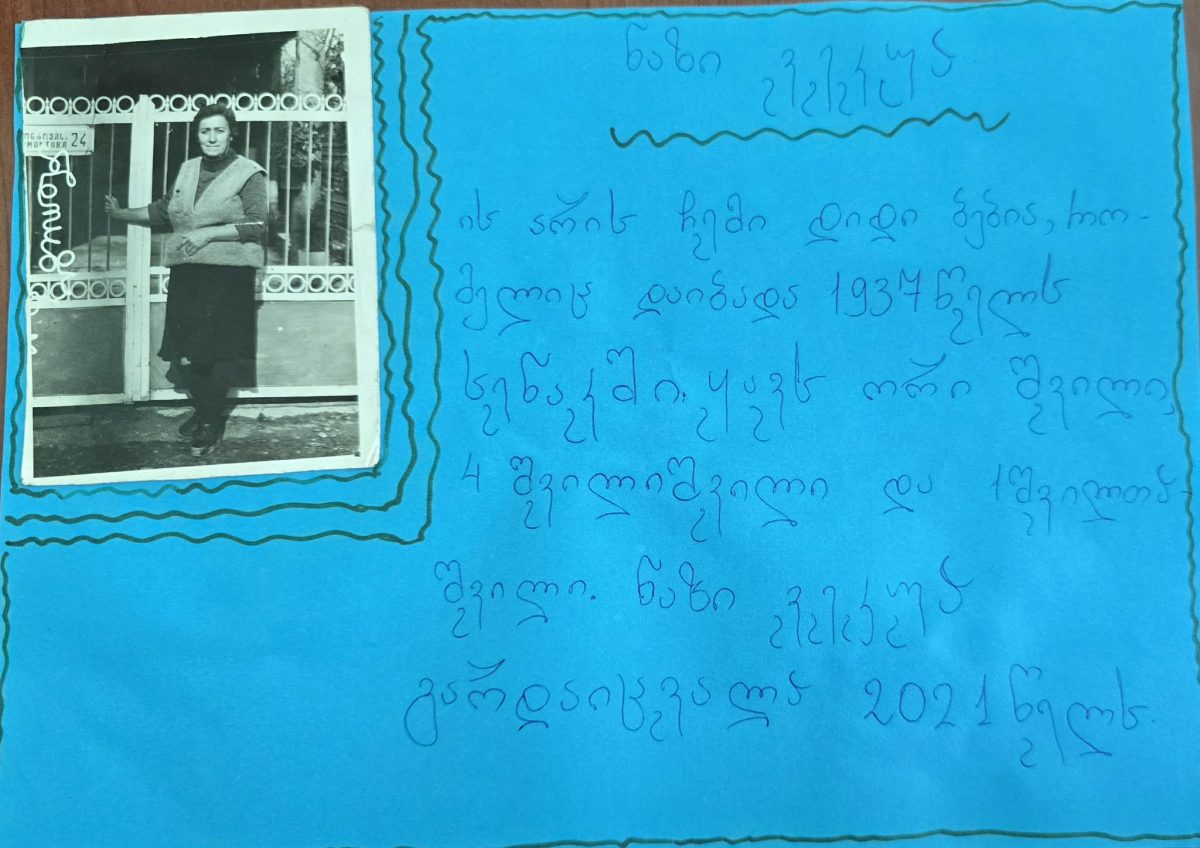 24
ნაზი ვეკუა
ის არის ჩემი დიდი ბებია, რო-
მელიც დაიბადა 1937 წელს
სენაკში. ყავს ორი შვილი,
4 შვილიშვილი და 1 შვილთა-
შვილი. ნაზი ვეკუა
გარდაიცვალა 2021 წელს.